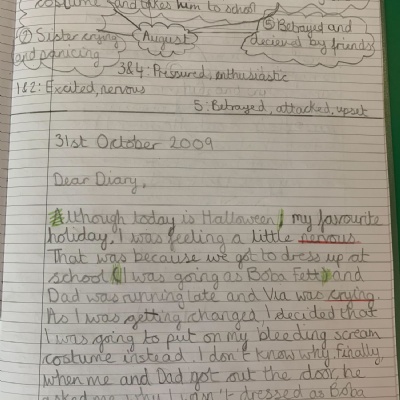 costume and takes him to school
② Sister crying
and panicing
August
⑤ Betrayed and
decieved by friends
3&4: Pressured, enthusiastic
1&2: Excited, nervous
5: Betrayed, attacked, upset
31st October 2009
Dear Diary,
Although today is Halloween, my favourite
holiday, I was feeling a little nervous.
That was because we got to dress up at
school (I was going as Boba Fett) and
Dad was running late and Via was crying.
As I was getting changed, I decided that
I was going to put on my bleeding scream
costume instead. I don't know why. Finally,
when me and Dad got out the door, he
asked me why I wasn't dressed as Boba